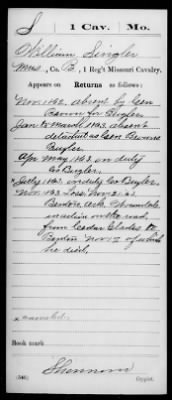 S 1 Cav. Mo.
William Singler
Mus, Co. B, 1 Reg't Missouri Cavalry.
Appears on
Returns as follows:
Nov. 1862, absent by Gen
for Bugler.
Jan. & March, 1863, absent
detached as Gen
Bugler.
Apr May, 1863, on duty
Co Bugler.
July 1863 on duty Co Bugler.
Nov. 1863 Loss, Nov.
Benton, Ark. Wounded
in action on the road
from Cedar Glades to
Benton Nov of which
he died.
Book mark
(546)
Shannon
Copyist.